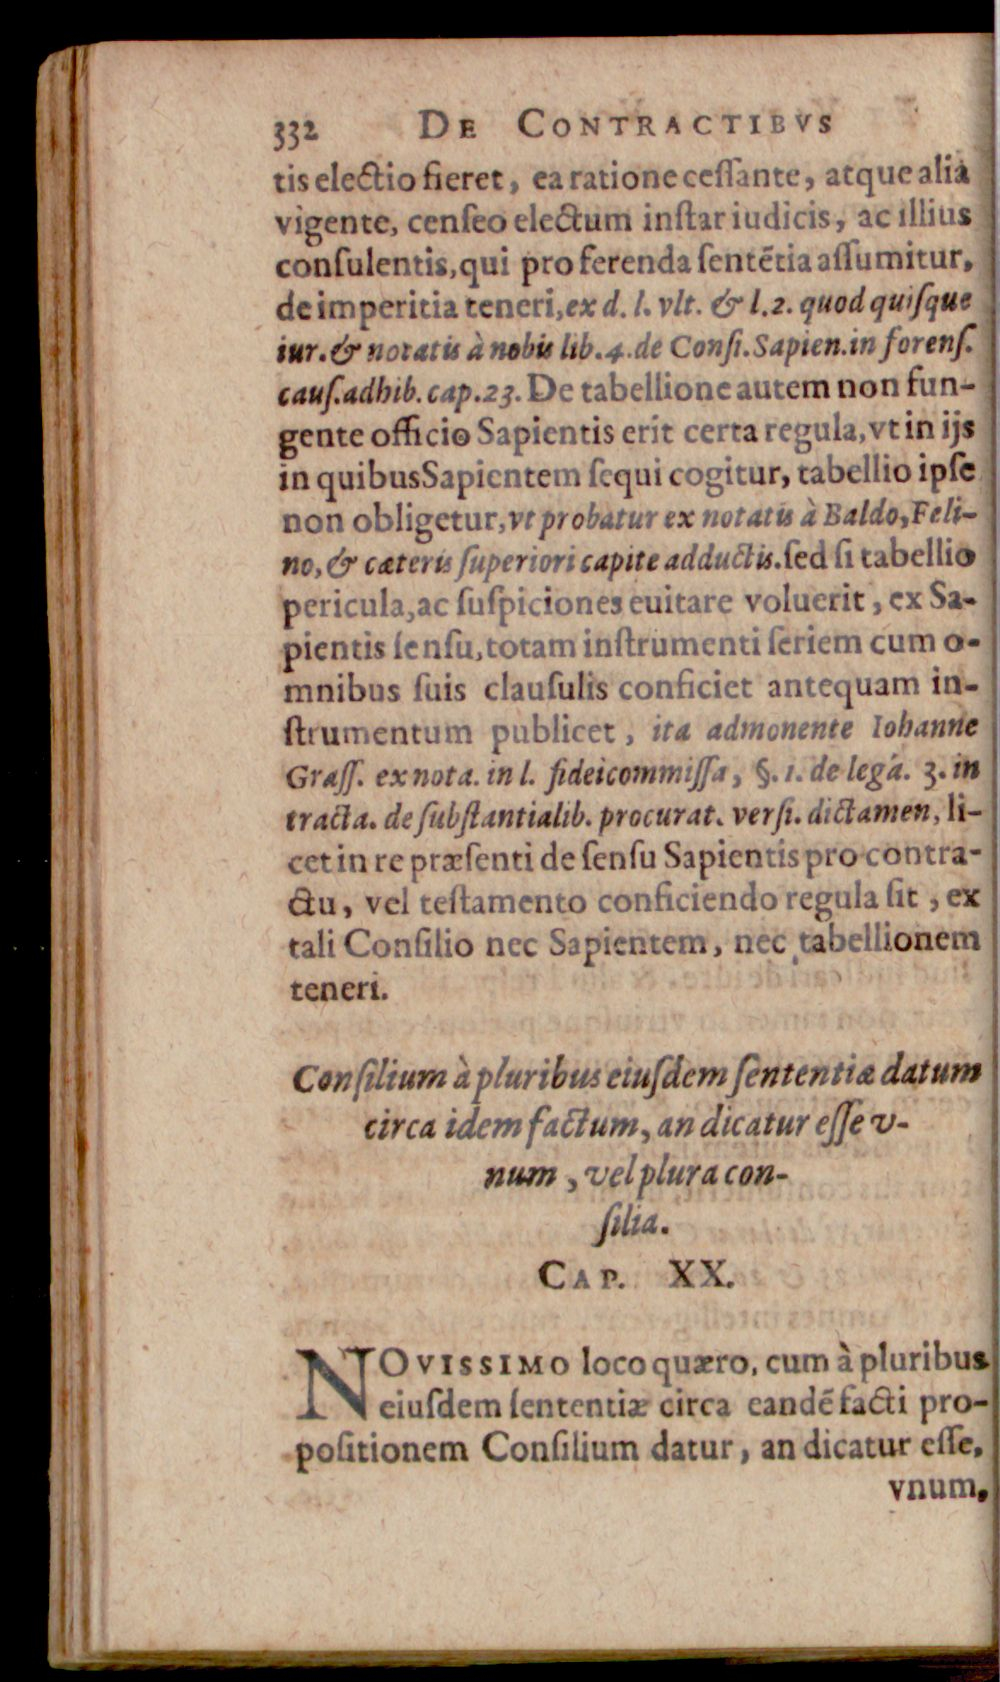 332 DE CONTRACTIBVS
tis electio fieret, ea ratione cessante, atque alia
vigente, censeo electum instar iudicis, ac illius
consulentis, qui pro ferenda sentẽtia assumitur,
de imperitia teneri, ex d. l. vlt. & l. 2. quod quisque
iur. & notatis à nobis lib. 4. de Consi. Sapien. in forens.
caus. adhib. cap. 23. De tabellione autem non fun-
gente officio Sapientis erit certa regula, vt in ijs
in quibus Sapientem sequi cogitur, tabellio ipse
non obligetur, vt probatur ex notatis à Baldo, Feli-
no, & cæteris superiori capite adductis. sed si tabellio
pericula, ac suspiciones euitare voluerit, ex Sa-
pientis sensu, totam instrumenti seriem cum o-
mnibus suis clausulis conficiet antequam in-
strumentum publicet, ita admonente Iohanne
Grass. ex nota. in l. fideicommissa, §. 1. de legá. 3. in
tracta. de substantialib. procurat. versi. dictamen, li-
cet in re præsenti de sensu Sapientis pro contra-
ctu, vel testamento conficiendo regula sit, ex
tali Consilio nec Sapientem, nec tabellionem
teneri.
Consilium à pluribus eiusdem sententiæ datum
circa idem factum, an dicatur esse v-
num, vel plura con-
silia.
CAP. XX.
NOVISSIMO loco quæro, cum à pluribus
eiusdem sententiæ circa eandẽ facti pro-
positionem Consilium datur, an dicatur esse,
vnum,